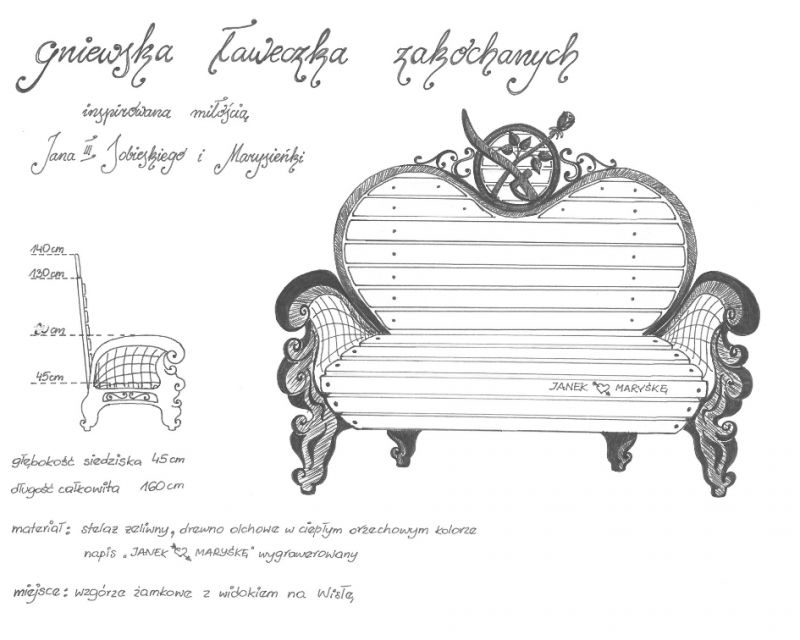 gniewska ławeczka zakochanych
inspirowana miłością
Jana III Sobieskiego i Marysieńki
140cm
130cm
cm
45cm
JANEK MARYŚKĘ
głębokość siedziska 45cm
długość całkowita 160cm
materiał: stelaż żeliwny, drewno olchowe w ciepłym orzechowym kolorze
napis „JANEK MARYŚKĘ" wygrawerowany
miejsce: wzgórze zamkowe z widokiem na Wisłę